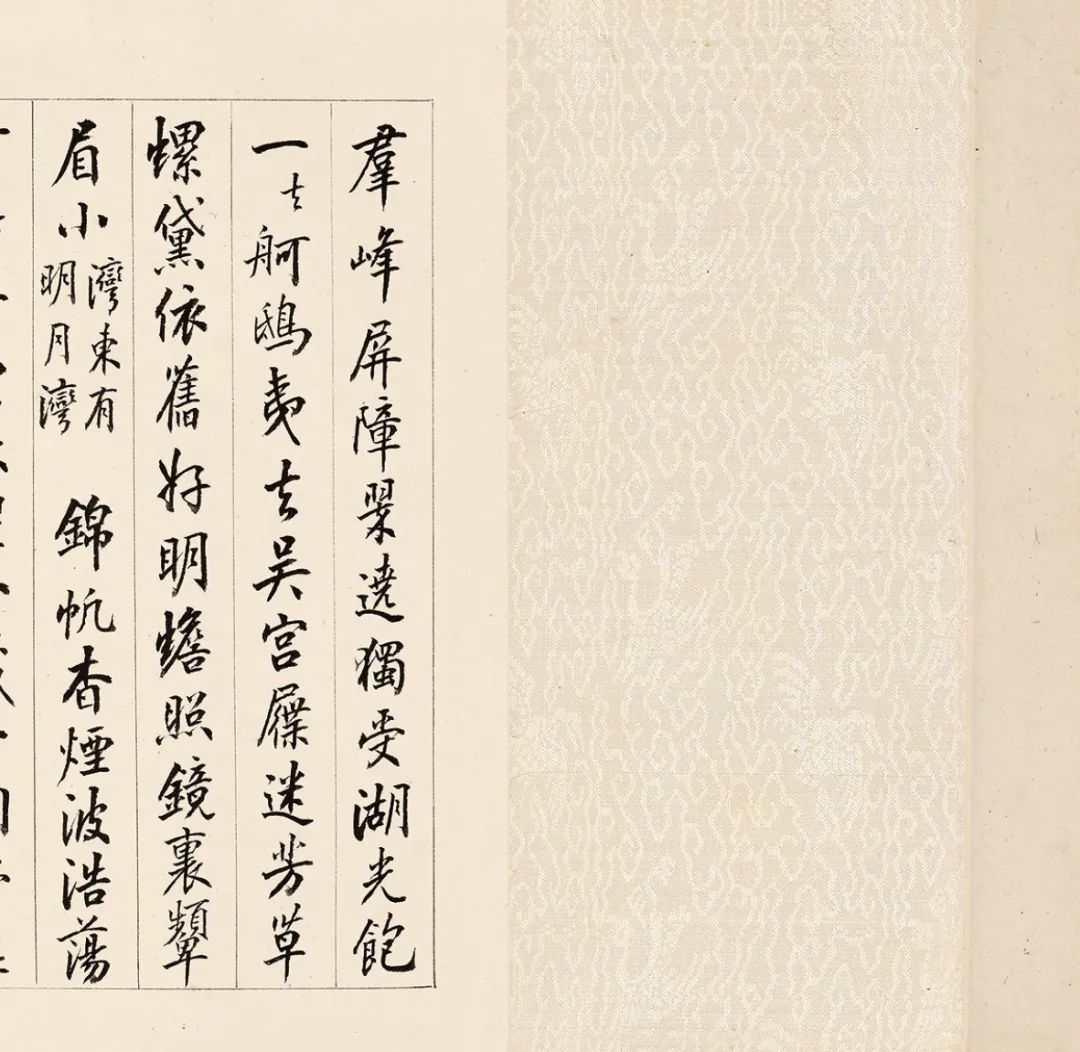 羣峰屏障翠遶獨受湖光飽
一去舸鴟夷去吴宫屧迷芳草
螺黛依舊好明蟾照鏡裏顰
眉小
灣東有
明月灣
錦帆杳煙波浩蕩